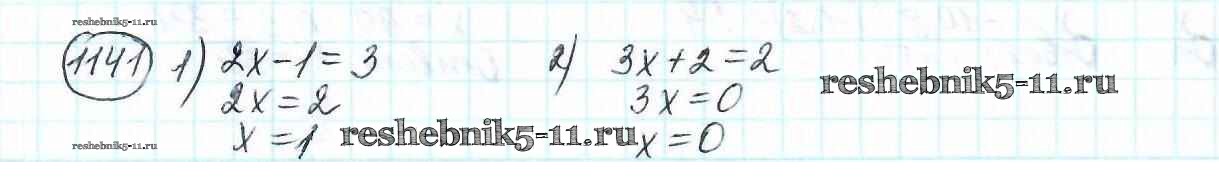 reshebnik5-11.ru
1141 1) 2x-1=3 2) 3x+2=2
2x=2 3x=0
reshebnik5-11.ru
x=1 reshebnik5-11.ru x=0
reshebnik5-11.ru